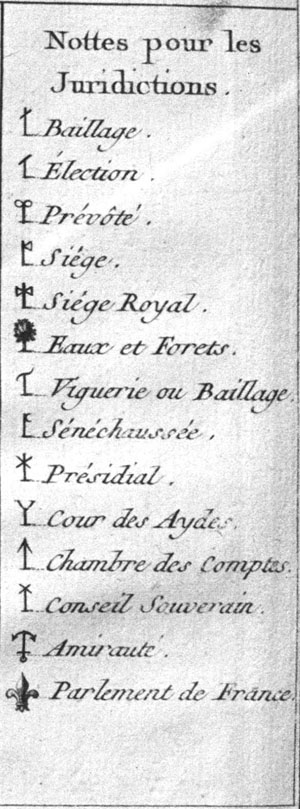 Nottes pour les
Juridictions.
Baillage.
Élection.
Prévôté.
Siége.
Siége Royal.
Eaux et Forets.
Viguerie ou Baillage.
Sénéchaussée.
Présidial.
Cour des Aydes.
Chambre des Comptes.
Conseil Souverain.
Amirauté.
Parlement de France.